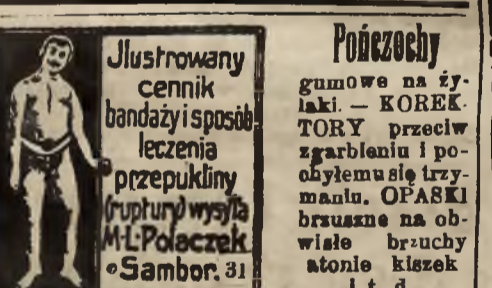 Jlustrowany
cennik
bandaży i sposób
leczenia
przepukliny
(ruptury) wysyła
M-L-Polaczek
Sambor. 31
Pończochy
gumowe na ży-
laki. — KOREK-
TORY przeciw
zgarbieniu i po-
chyłemu się trzy-
maniu. OPASKI
brzuszne na ob-
wisłe brzuchy
atonie kiszek
i t. d.